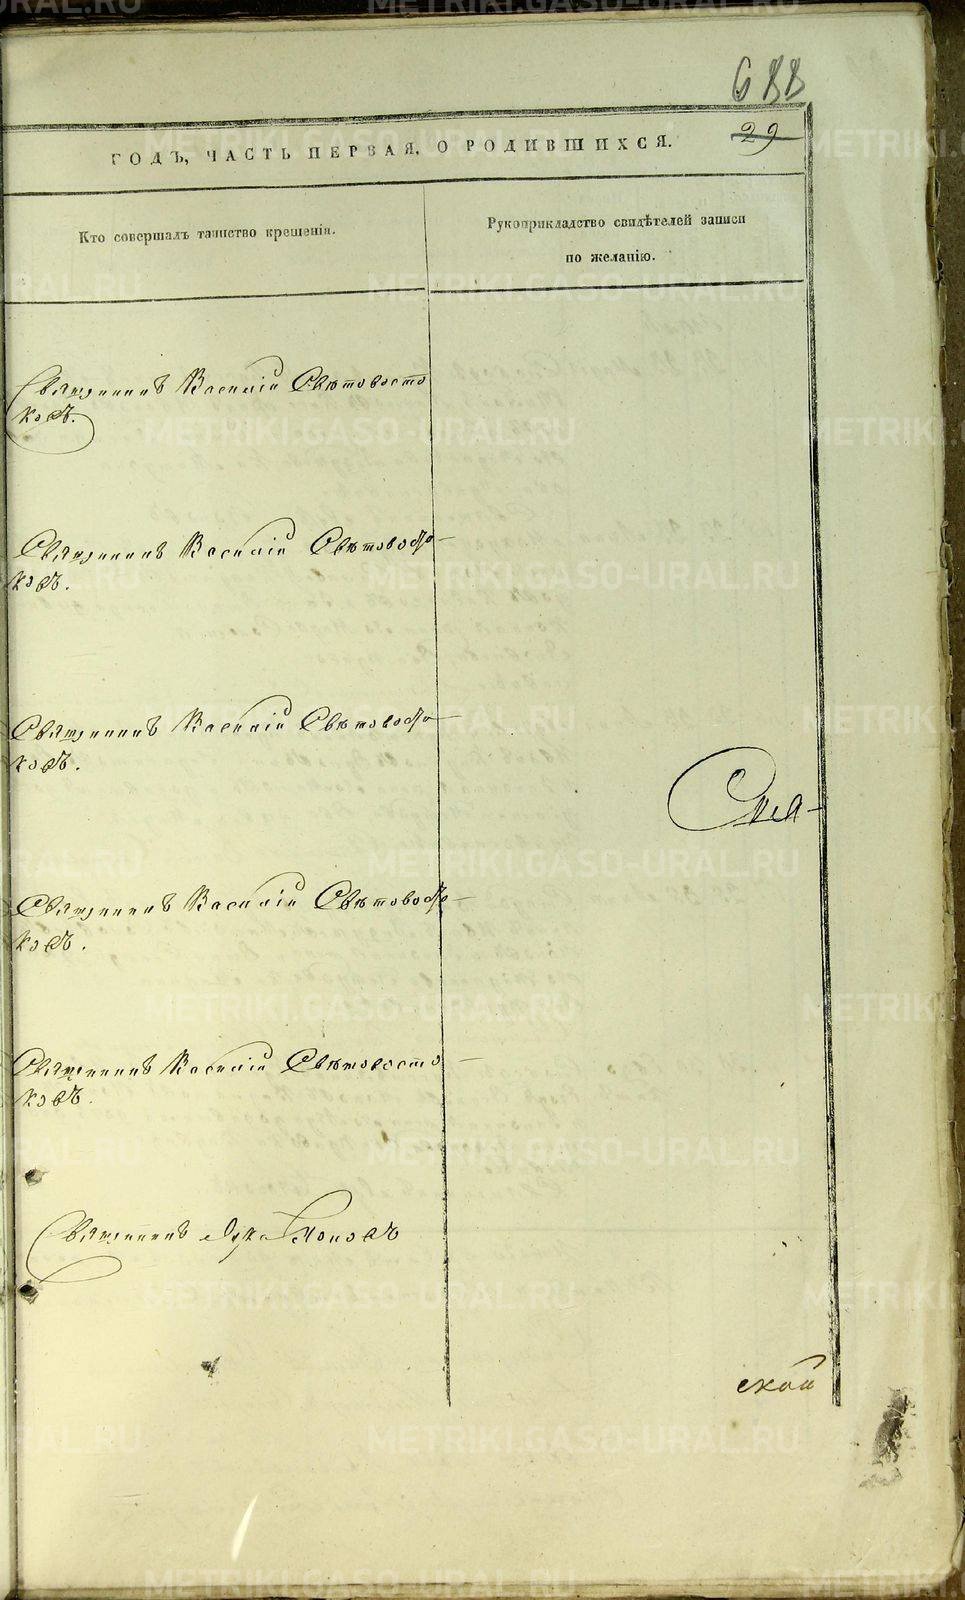 688
29
ГОДЪ, ЧАСТЬ ПЕРВАЯ, О РОДИВШИХСЯ.
Кто совершалъ таинство крещенія.
Рукоприкладство свидѣтелей записи
по желанію.
Священникъ Василій Свѣтовосто
ковъ.
Священникъ Василій Свѣтовосто-
ковъ.
Священникъ Василій Свѣтовосто-
ковъ.
Священникъ Василій Свѣтовосто-
ковъ.
Священникъ Василій Свѣтовосто-
ковъ.
Священникъ Поповъ
ской
METRIKI.GASO-URAL.RU